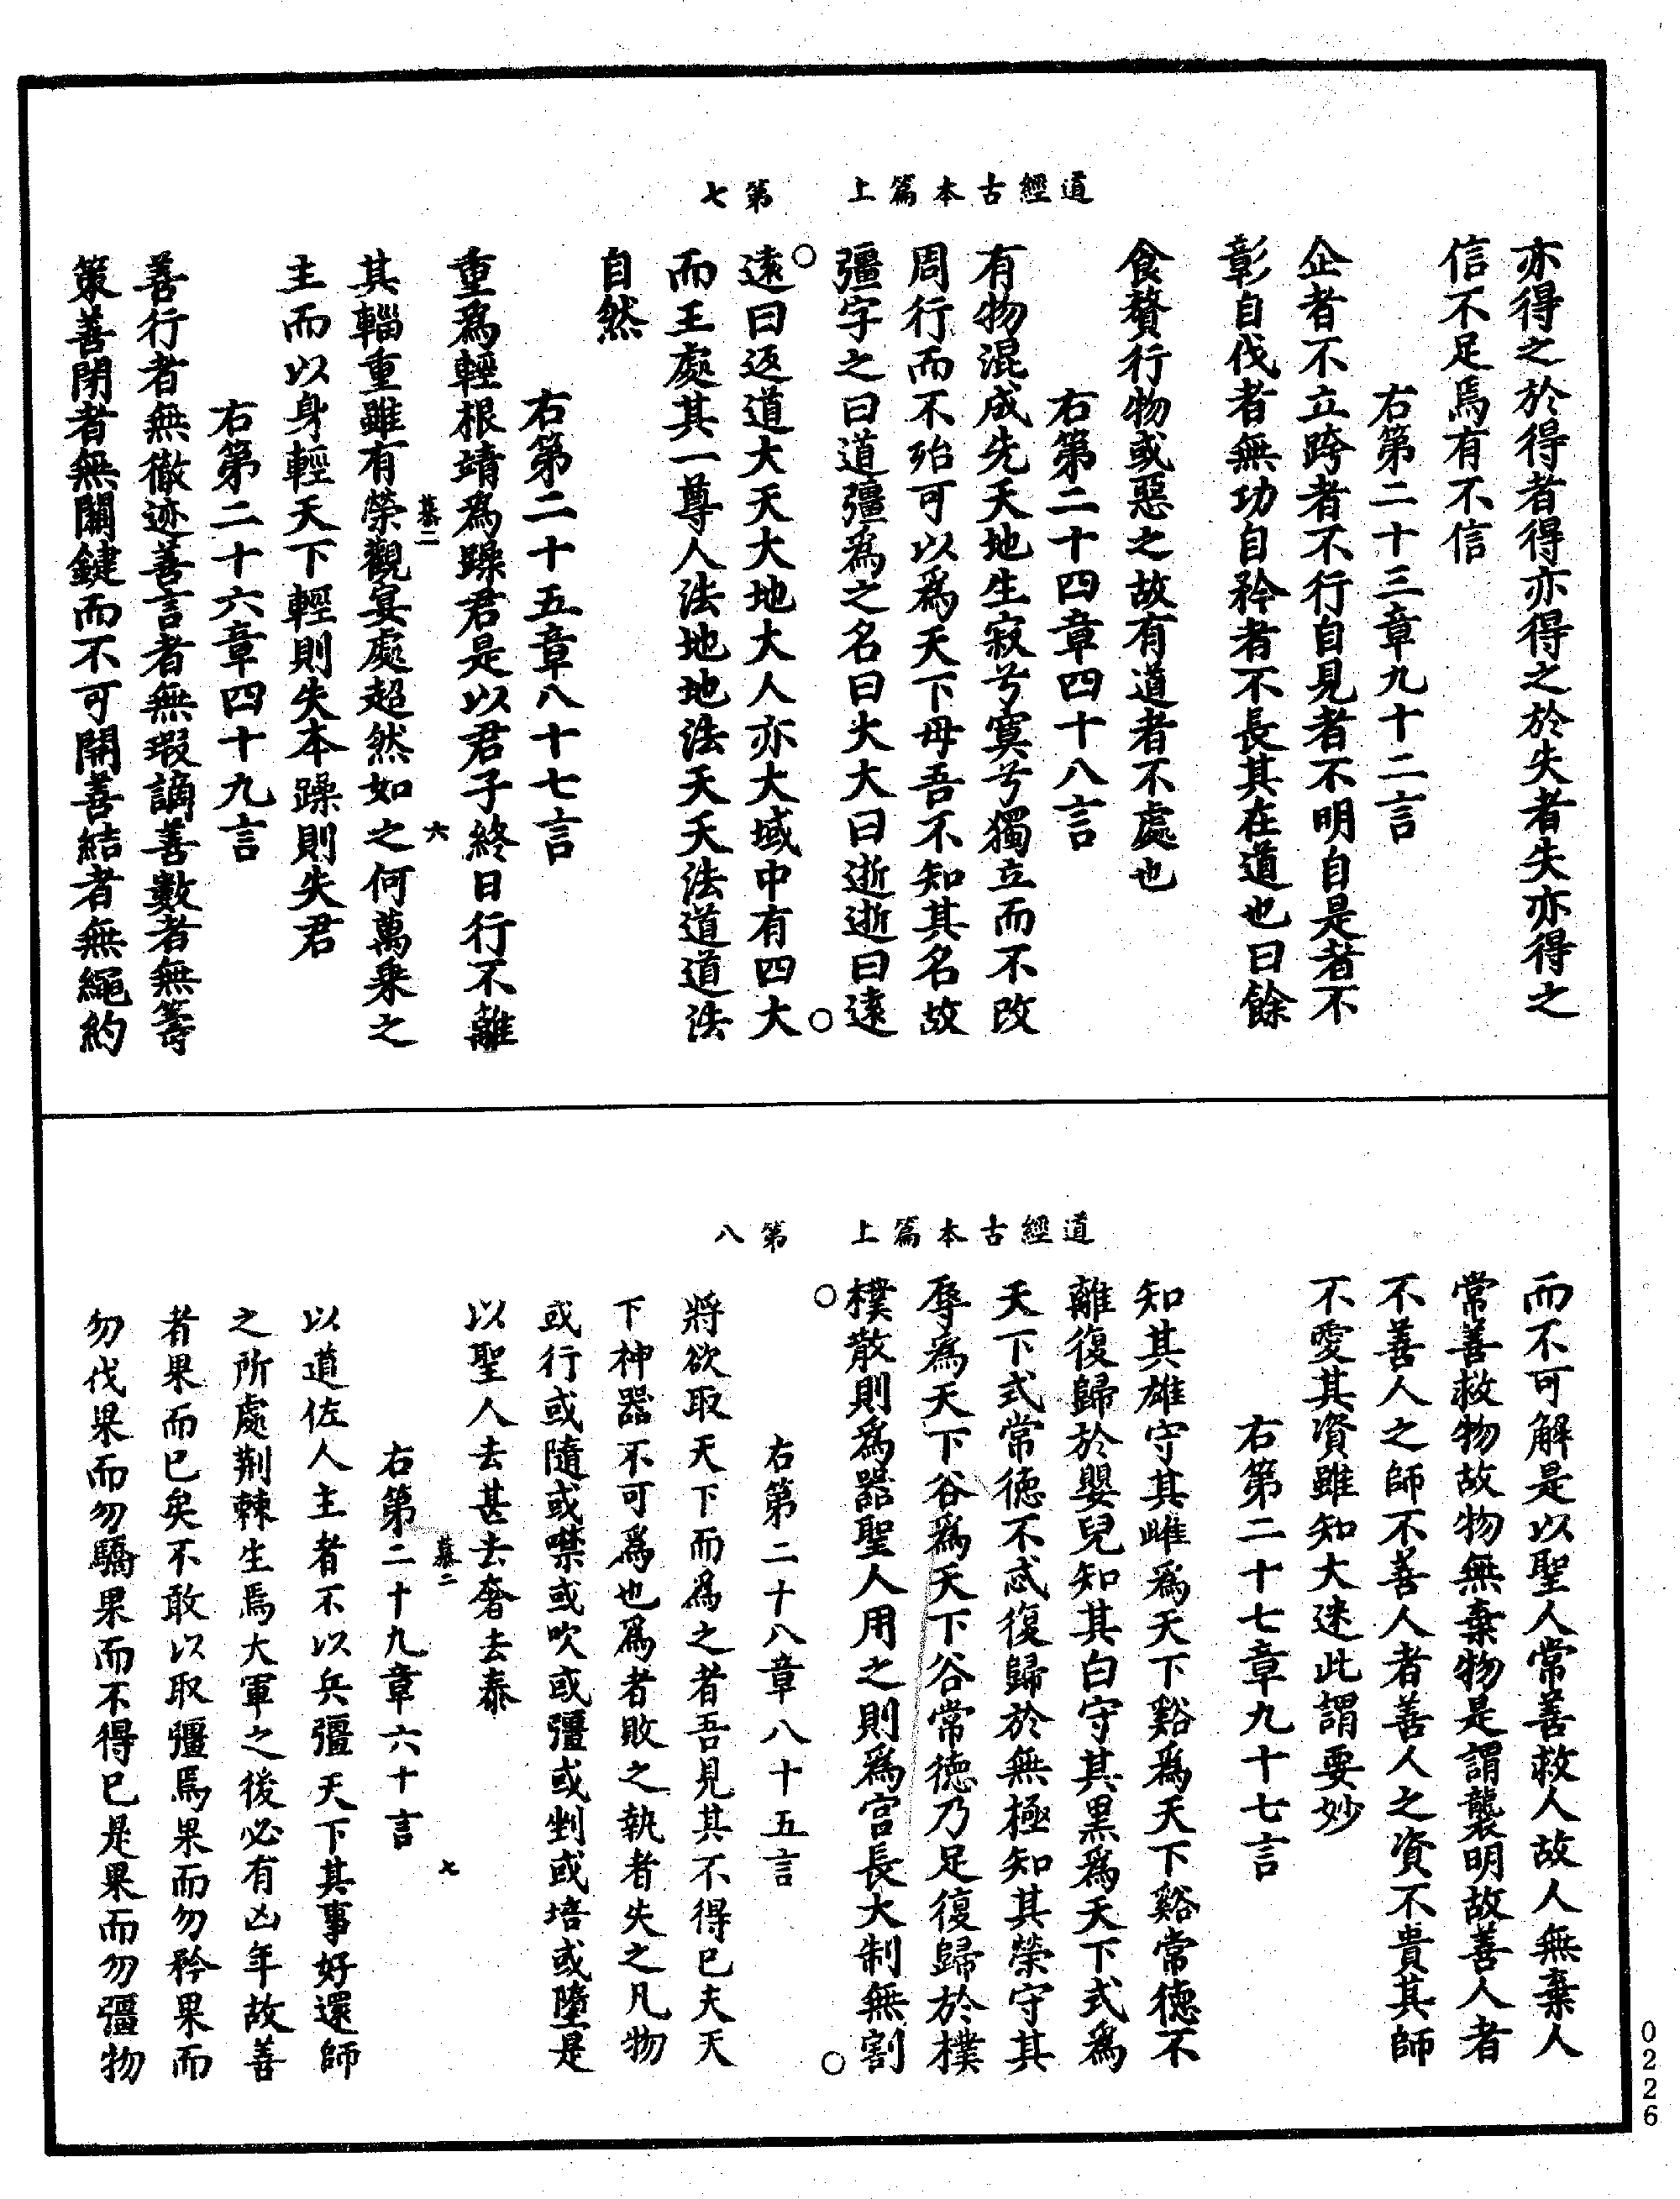 道經古本篇上　第七
亦得之於得者得亦得之於失者失亦得之
信不足焉有不信
右第二十三章九十二言
企者不立跨者不行自見者不明自是者不
彰自伐者無功自矜者不長其在道也曰餘
食贅行物或惡之故有道者不處也
右第二十四章四十八言
有物混成先天地生寂兮寞兮獨立而不改
周行而不殆可以爲天下母吾不知其名故
彊字之曰道彊爲之名曰大大曰逝逝曰遠
遠曰返道大天大地大人亦大域中有四大
而王處其一尊人法地地法天天法道道法
自然
右第二十五章八十七言
重爲輕根靖爲躁君是以君子終日行不離
慕二　六
其輜重雖有榮觀宴處超然如之何萬乘之
主而以身輕天下輕則失本躁則失君
右第二十六章四十九言
善行者無徹迹善言者無瑕謫善數者無籌
策善閉者無關鍵而不可開善結者無繩約
道經古本篇上　第八
而不可解是以聖人常善救人故人無棄人
常善救物故物無棄物是謂襲明故善人者
不善人之師不善人者善人之資不貴其師
不愛其資雖知大迷此謂要妙
右第二十七章九十七言
知其雄守其雌爲天下谿爲天下谿常德不
離復歸於嬰兒知其白守其黑爲天下式爲
天下式常德不忒復歸於無極知其榮守其
辱爲天下谷爲天下谷常德乃足復歸於樸
樸散則爲器聖人用之則爲官長大制無割
右第二十八章八十五言
將欲取天下而爲之者吾見其不得已夫天
下神器不可爲也爲者敗之執者失之凡物
或行或隨或噤或吹或彊或剉或培或墮是
以聖人去甚去奢去泰
慕二　七
右第二十九章六十言
以道佐人主者不以兵彊天下其事好還師
之所處荆棘生焉大軍之後必有凶年故善
者果而已矣不敢以取彊焉果而勿矜果而
勿伐果而勿驕果而不得已是果而勿彊物
0226